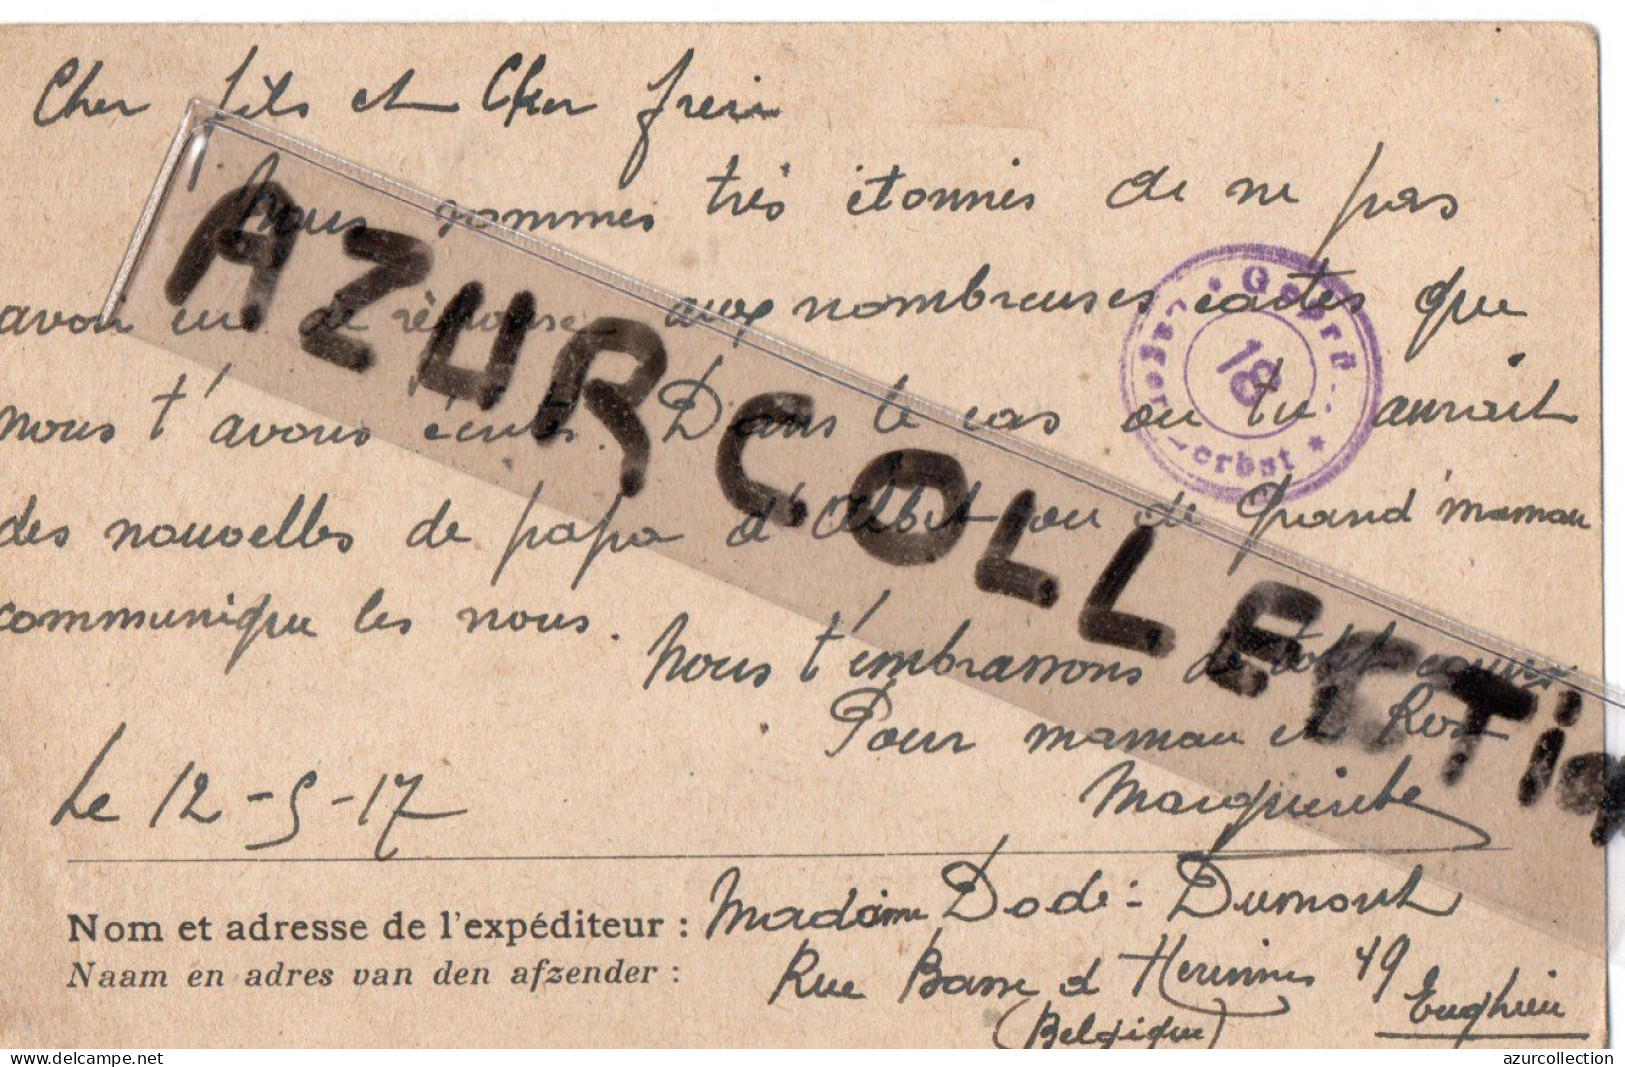 Cher fils et Cher frère
Nous sommes très étonnés de ne pas
avoir eu de réponse aux nombreuses cartes que
nous t'avons écrites. Dans le cas ou tu aurait
des nouvelles de papa d'Albert ou de Grand'maman
communique les nous.
Nous t'embrassons de tout coeur
Pour maman et Rosa
Marguerite
Le 12-5-17
Nom et adresse de l'expéditeur : Madame Dode-Dumont
Naam en adres van den afzender : Rue Basse d Herinnes 49 Enghien
(Belgique)
Geprü
18
Zerbst *
AZURCOLLECTion
delcampe.net
azurcollection